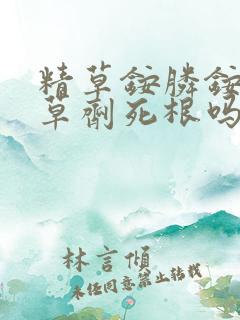 精草铵膦铵
草剂死根吗
林言倾
未经同意禁止转载